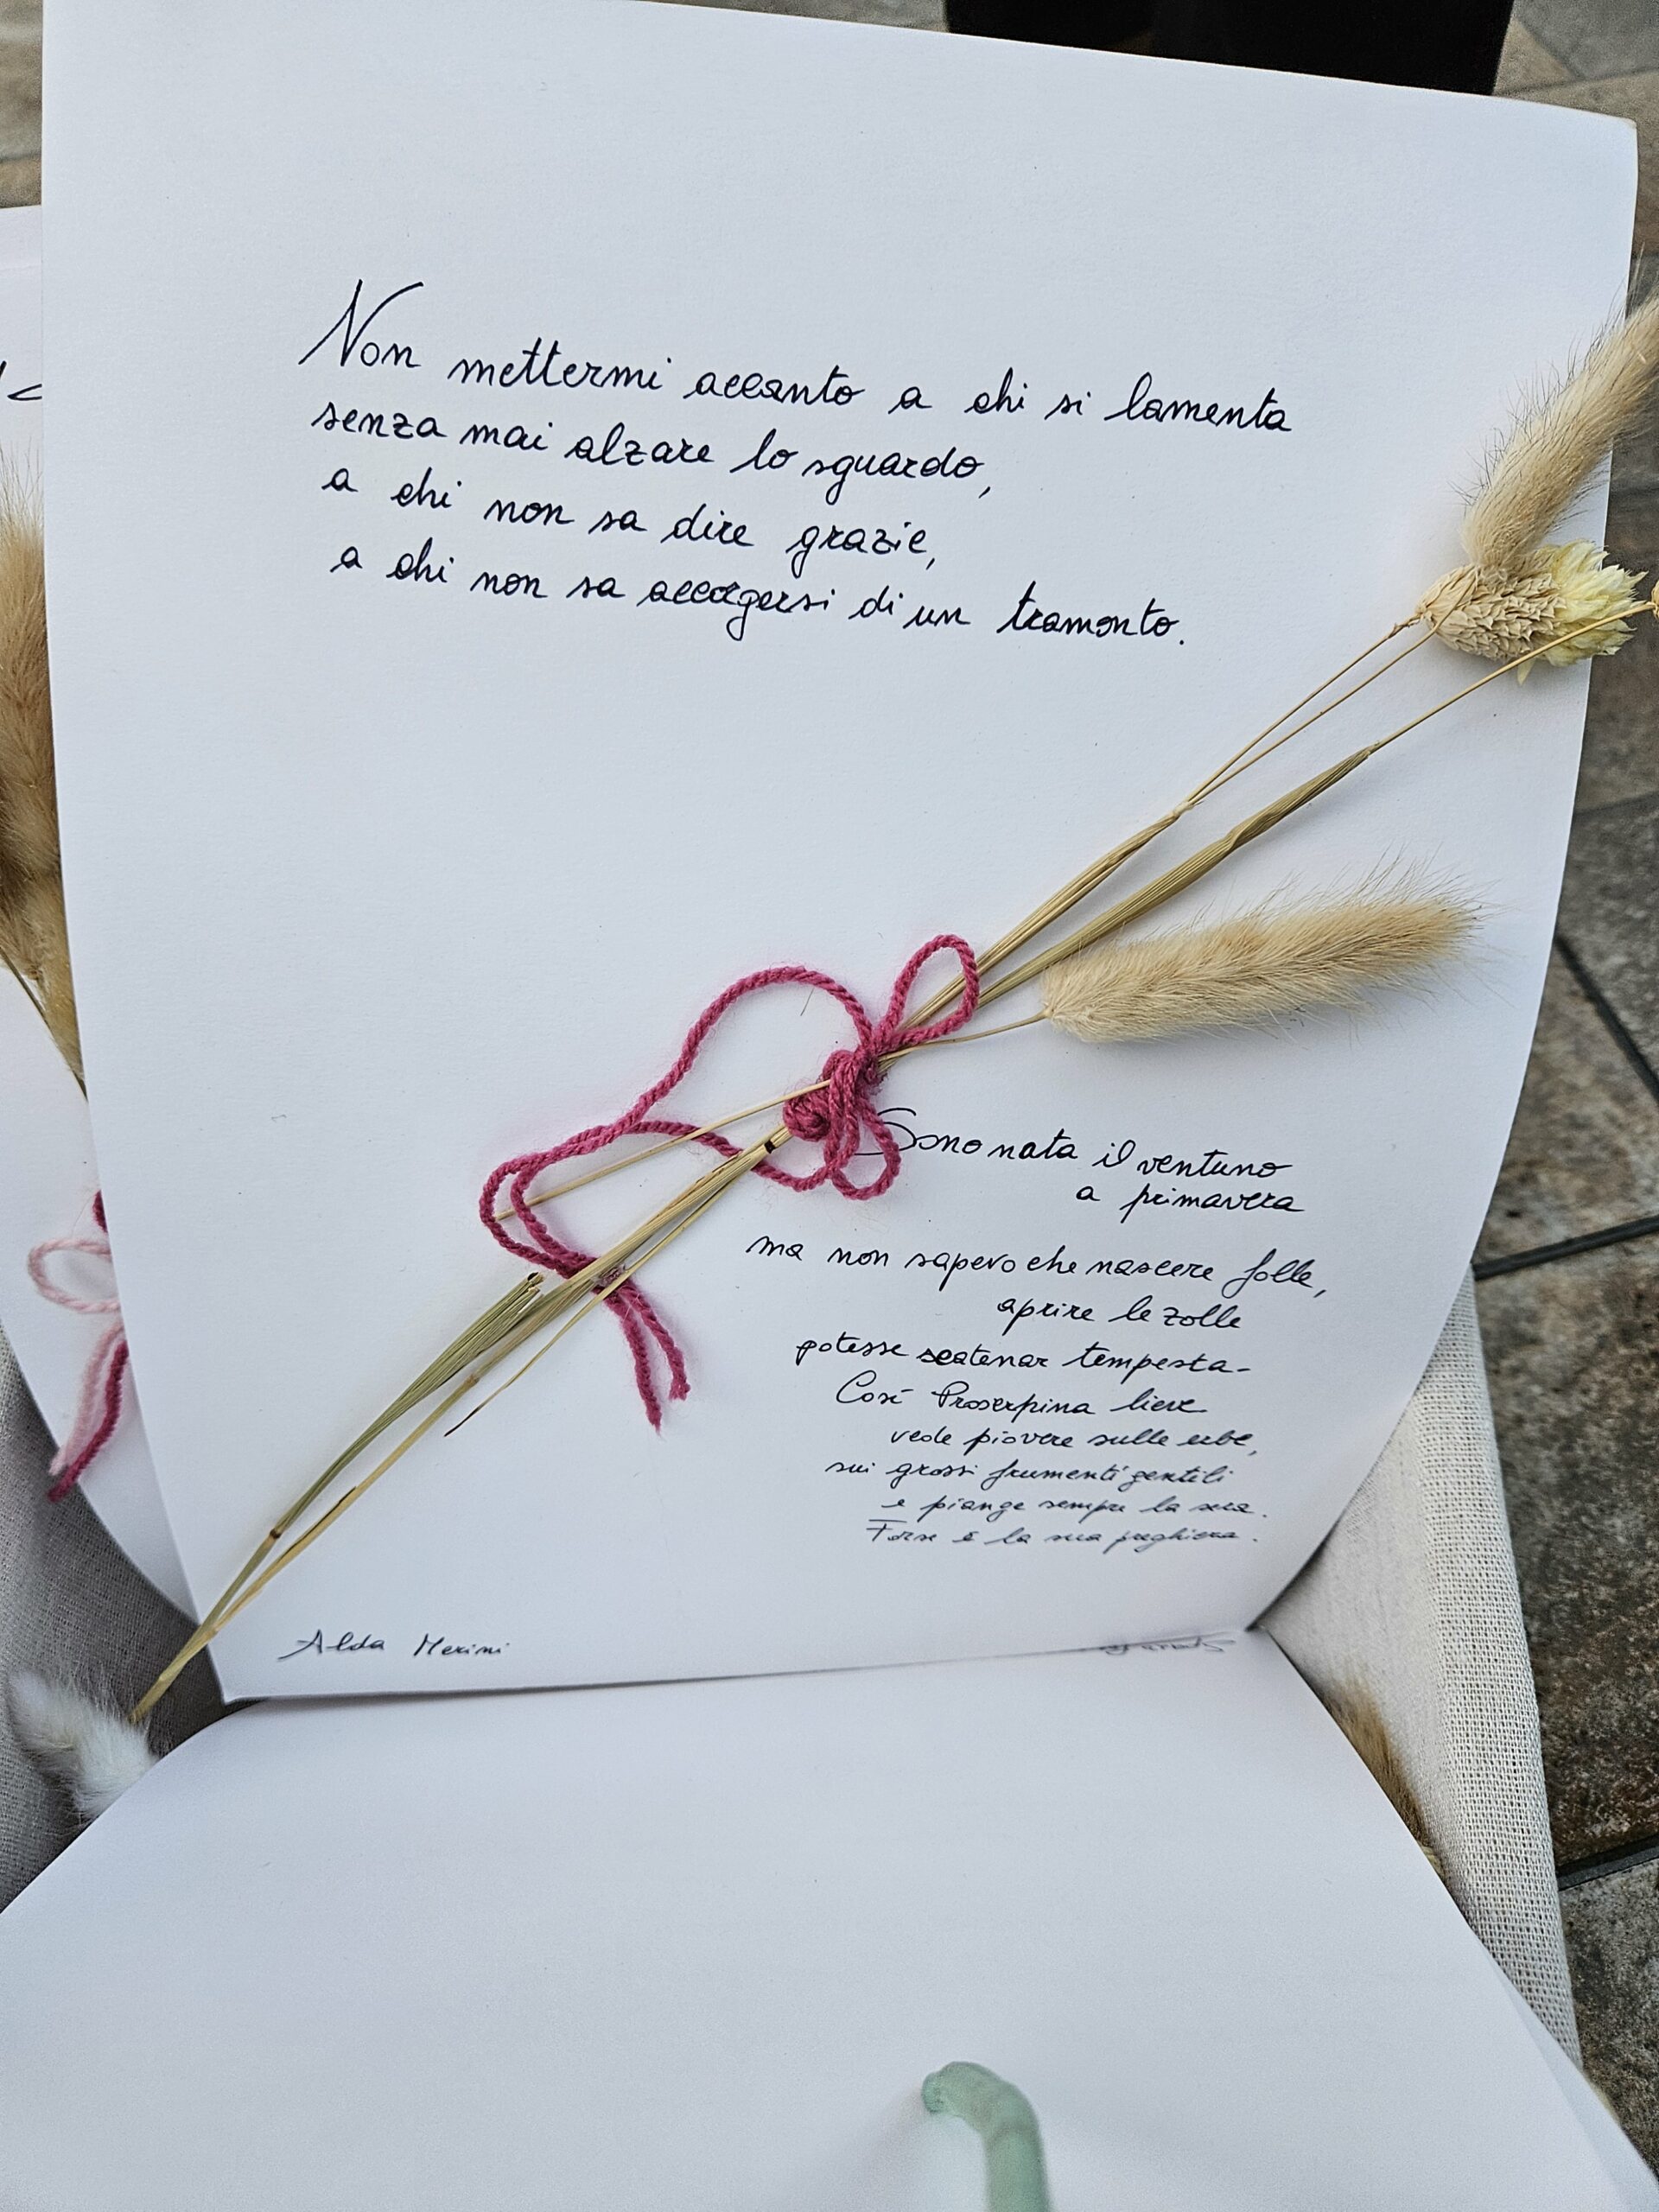 Non mettermi accanto a chi si lamenta
senza mai alzare lo sguardo,
a chi non sa dire grazie,
a chi non sa accorgersi di un tramonto.
Sono nata il ventuno
a primavera
ma non sapevo che nascere folle,
aprire le zolle
potesse scatenar tempesta-
Così Proserpina lieve
vede piovere sulle erbe,
sui grossi frumenti gentili
e piange sempre la sera.
Forse è la sua preghiera.
Alda Merini